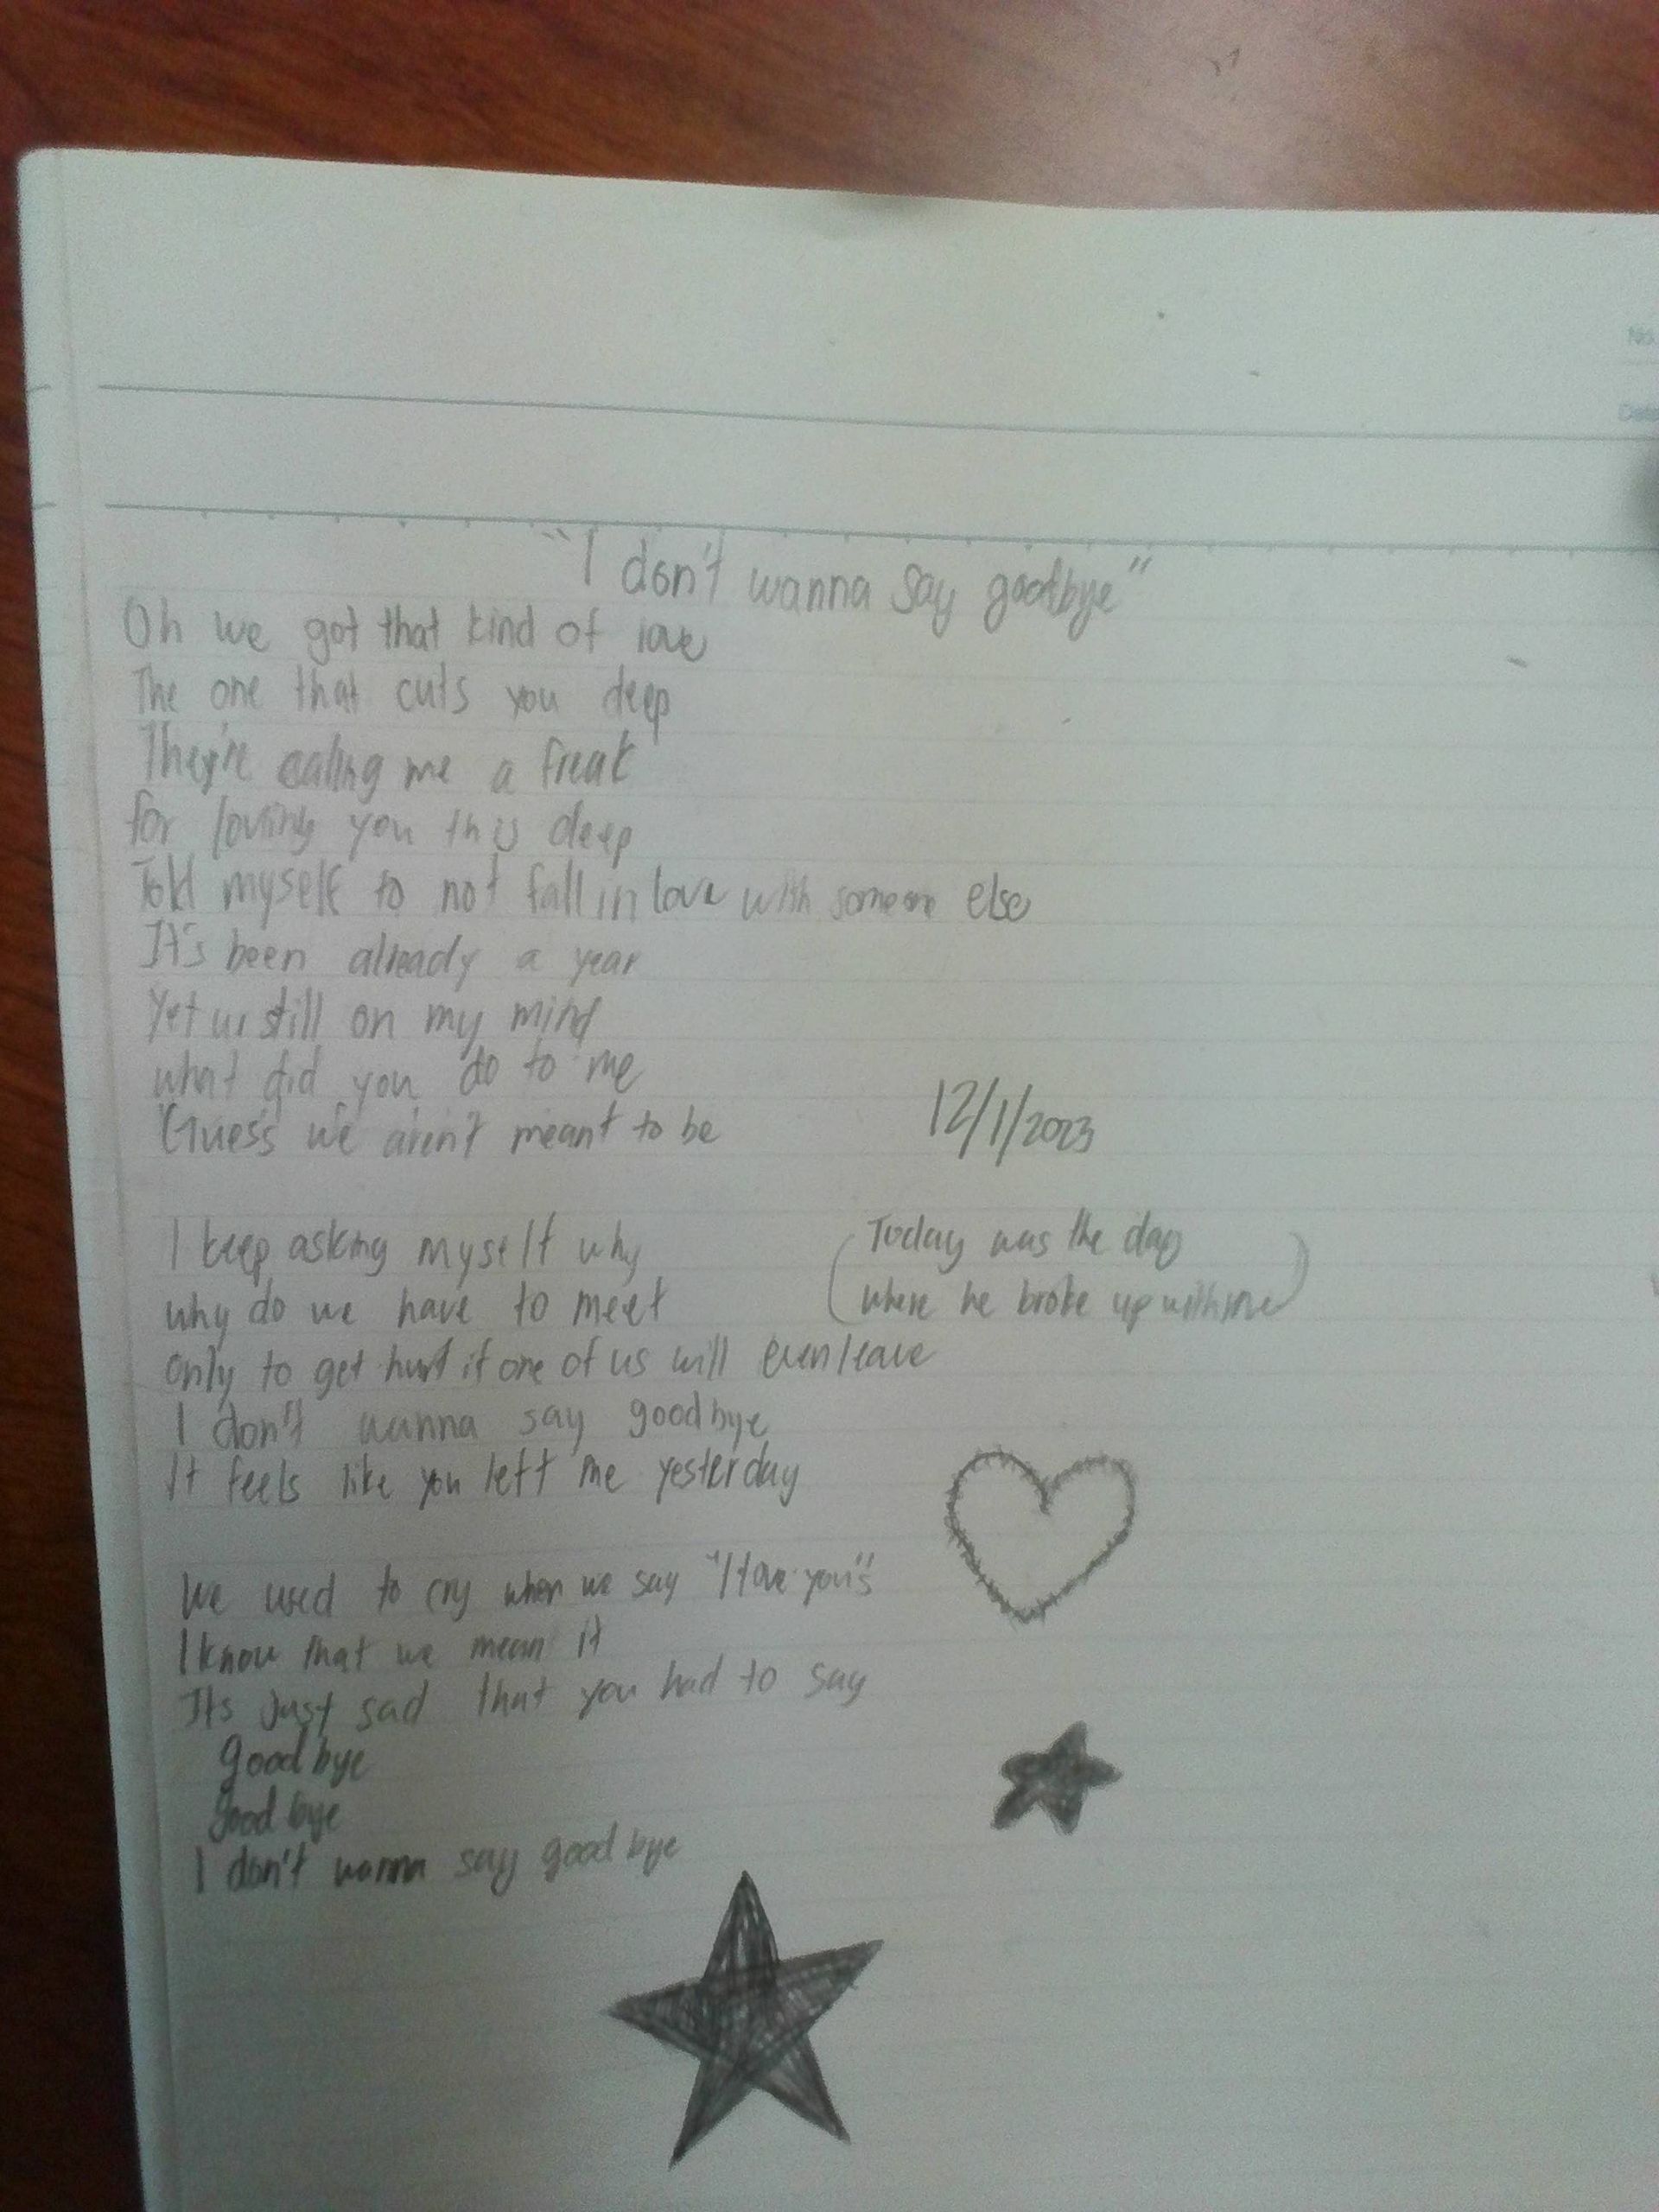 No.
Date
"I don't wanna say goodbye"
Oh we got that kind of love
The one that cuts you deep
They're calling me a freak
for loving you this deep
Told myself to not fall in love with someone else
It's been already a year
Yet ur still on my mind
what did you do to me
Guess we aren't meant to be
12/1/2023
I keep asking myself why
why do we have to meet
only to get hurt if one of us will even leave
I don't wanna say goodbye
It feels like you left me yesterday
(Today was the day
where he broke up with me)
We used to cry when we say "I love you's"
I know that we mean it
It's Just sad that you had to say
Good bye
Good bye
I don't wanna say good bye